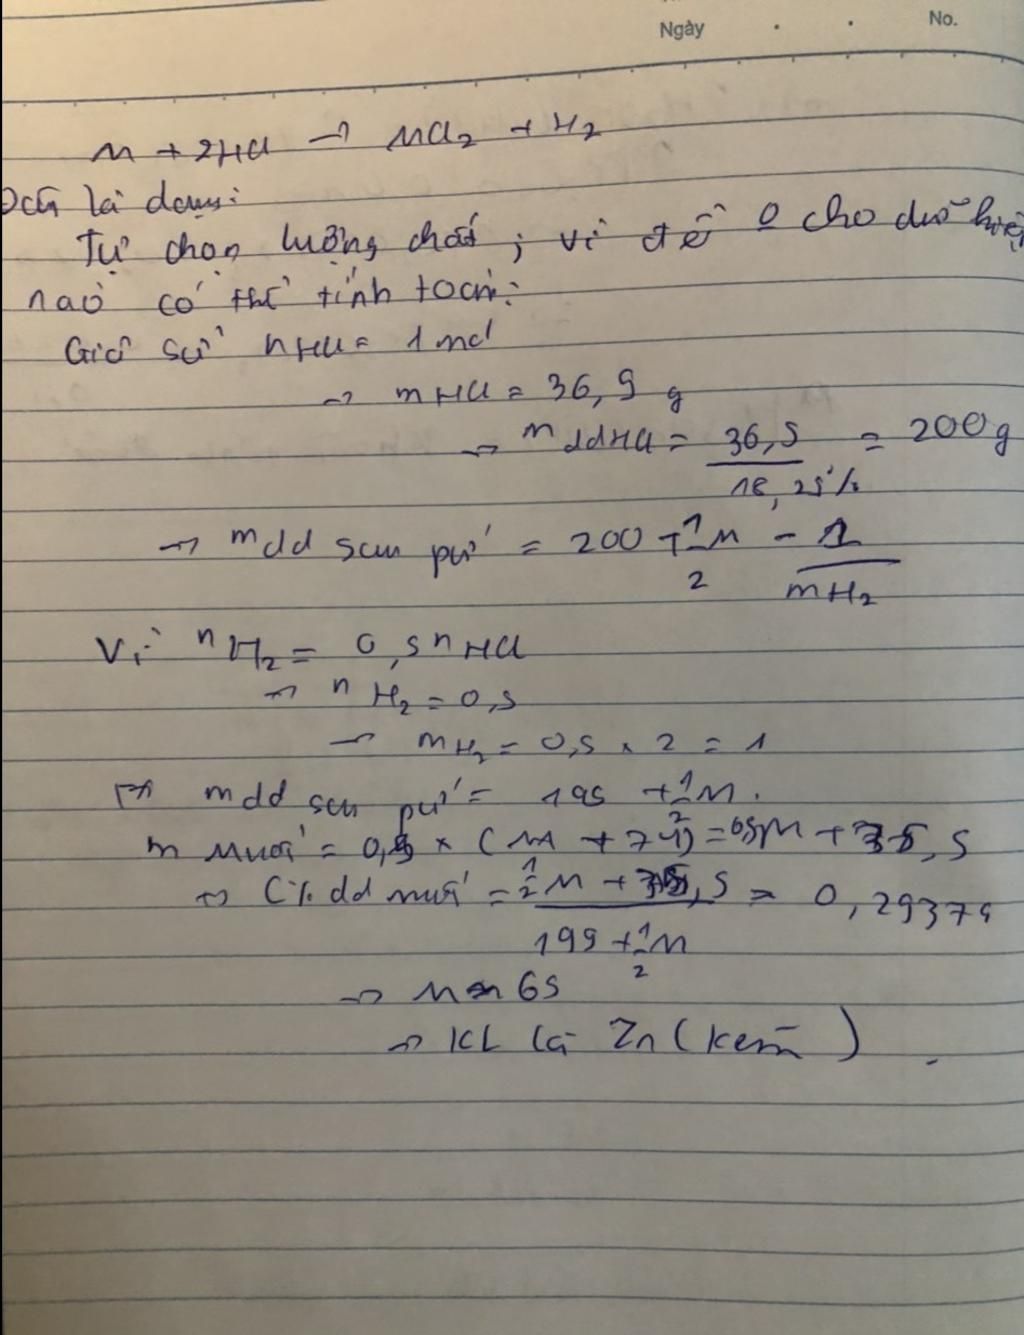 Ngày . . No.
M + 2HCl → MCl2 + H2
Đây là dạng:
Tự chọn lượng chất ; vì đề 0 cho dữ kiện
nào có thể tính toán:
Giả sử nHCl = 1 mol
→ mHCl = 36,5 g
→ mddHCl = 36,5 / 18,25% = 200g
→ mdd sau pứ = 200 + 1/2 M - 1 / mH2
Vì nH2 = 0,5 nHCl
→ nH2 = 0,5
→ mH2 = 0,5 x 2 = 1
mdd sau pứ = 199 + 1/2 M.
m muối = 0,5 x (M + 71) = 0,5M + 35,5
C% dd muối = 1/2 M + 35,5 / 199 + 1/2 M = 0,29379
→ M = 65
→ KL là Zn (kẽm)